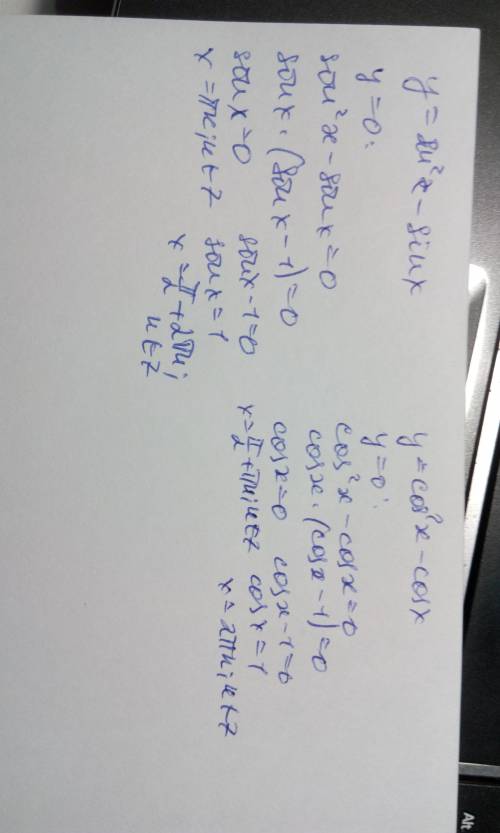 y = sin²x - sinx
y=0:
sin²x - sinx=0
sinx·(sinx-1)=0
sinx=0 sinx-1=0
x=πn; n∈Z sinx=1
x=π/2+2πn;
n∈Z
y=cos²x-cosx
y=0:
cos²x-cosx=0
cosx·(cosx-1)=0
cosx=0 cosx-1=0
x=π/2+πn; n∈Z cosx=1
x=2πn; n∈Z
Alt